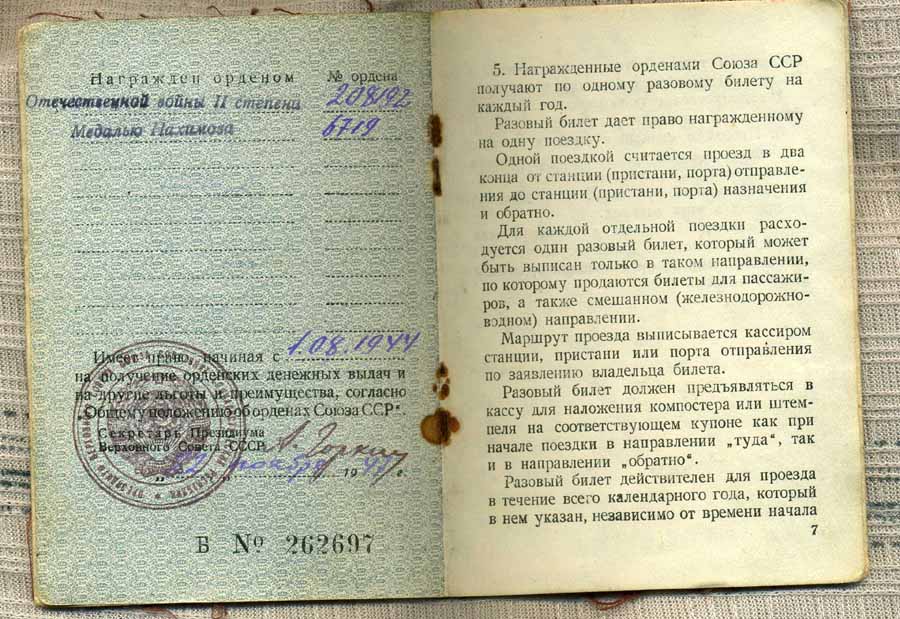 Награжден орденом № ордена
Отечественной войны II степени 208192
Медалью Нахимова 6719
Имеет право, начиная с 1.08.1944
на получение орденских денежных выдач и
на другие льготы и преимущества, согласно
"Общему положению об орденах Союза ССР"
Секретарь Президиума
Верховного Совета СССР А. Горкин
"22" ноября 194 г.
Б № 262697
5. Награжденные орденами Союза ССР
получают по одному разовому билету на
каждый год.
Разовый билет дает право награжденному
на одну поездку.
Одной поездкой считается проезд в два
конца от станции (пристани, порта) отправле-
ния до станции (пристани, порта) назначения
и обратно.
Для каждой отдельной поездки расхо-
дуется один разовый билет, который может
быть выписан только в таком направлении,
по которому продаются билеты для пассажи-
ров, а также смешанном (железнодорожно-
водном) направлении.
Маршрут проезда выписывается кассиром
станции, пристани или порта отправления
по заявлению владельца билета.
Разовый билет должен предъявляться в
кассу для наложения компостера или штем-
пеля на соответствующем купоне как при
начале поездки в направлении „туда", так
и в направлении „обратно".
Разовый билет действителен для проезда
в течение всего календарного года, который
в нем указан, независимо от времени начала
7